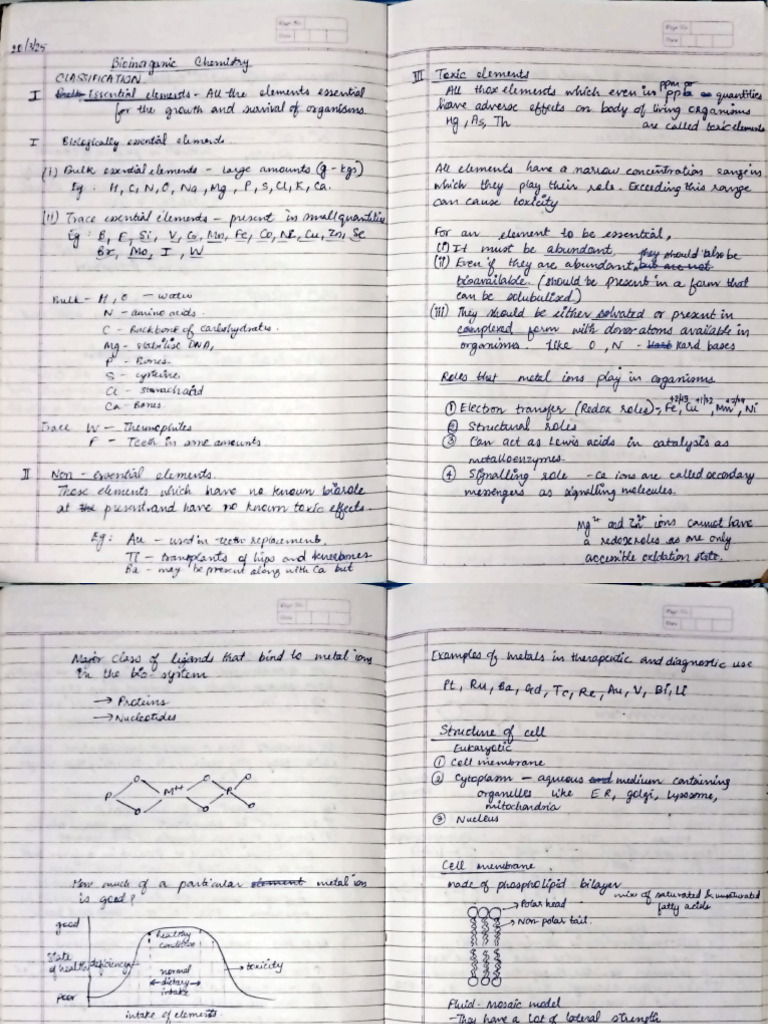 20/3/25
Bioinorganic Chemistry
CLASSIFICATION
I Essential elements - All the elements essential
for the growth and survival of organisms.
I Biologically essential elements.
(I) Bulk essential elements - large amounts (g - kgs)
Eg. H, C, N, O, Na, Mg, P, S, Cl, K, Ca.
(II) Trace essential elements - present in small quantities
Eg: B, F, Si, V, Cr, Mn, Fe, Co, Ni, Cu, Zn, Se
Br, Mo, I, W
Bulk - H, O - water
N - amino acids.
C - Backbone of carbohydrates.
Mg - stabilise DNA,
P - Bones.
S - cysteine.
Cl - stomach acid
Ca - Bones.
Trace W - Thermophiles
F - Teeth in some amounts
II Non-essential elements.
Those elements which have no known biorole
at the present and have no known toxic effects.
Eg: Au - used in teeth replacement.
Ti - transplants of hips and kneebones
Ba - may be present along with Ca but
III Toxic elements
ppm or
All those elements which even in ppb quantities
have adverse effects on body of living organisms
Hg, As, Th are called toxic elements
All elements have a narrow concentration range in
which they play their role. Exceeding this range
can cause toxicity
For an element to be essential,
(i) It must be abundant.
(ii) Even if they are abundant, but are not they should also be
bioavailable. (should be present in a form that
can be solubilised.)
(iii) They should be either solvated or present in
complexed form with donor atoms available in
organisms. Like O, N - hard bases
Roles that metal ions play in organisms
① Electron transfer (Redox roles) - Fe+2/+3, Cu+1/+2, Mn+3/+4, Ni
② Structural roles
③ Can act as Lewis acids in catalysis as
metalloenzymes.
④ Signalling role - Ca ions are called secondary
messengers as signalling molecules.
Mg2+ and Zn2+ ions cannot have
a redox roles as one only
accessible oxidation state.
Major class of ligands that bind to metal ions
in the bio-system
→ Proteins
→ Nucleotides
P O O M^n+ O O P O O
How much of a particular element metal ion
is good?
good
State of health
poor
deficiency
healthy condition
normal dietary intake
toxicity
intake of elements.
Examples of metals in therapeutic and diagnostic use
Pt, Ru, Ba, Gd, Tc, Re, Au, V, Bi, Li
Structure of cell
Eukaryotic
① Cell membrane
② Cytoplasm - aqueous and medium containing
organelles like E.R, golgi, Lysosome,
mitochondria
③ Nucleus
Cell membrane
made of phospholipid bilayer
mix of saturated & unsaturated
fatty acids
→ Polar head
→ Non-polar tail.
Fluid-Mosaic model
- They have a lot of lateral strength